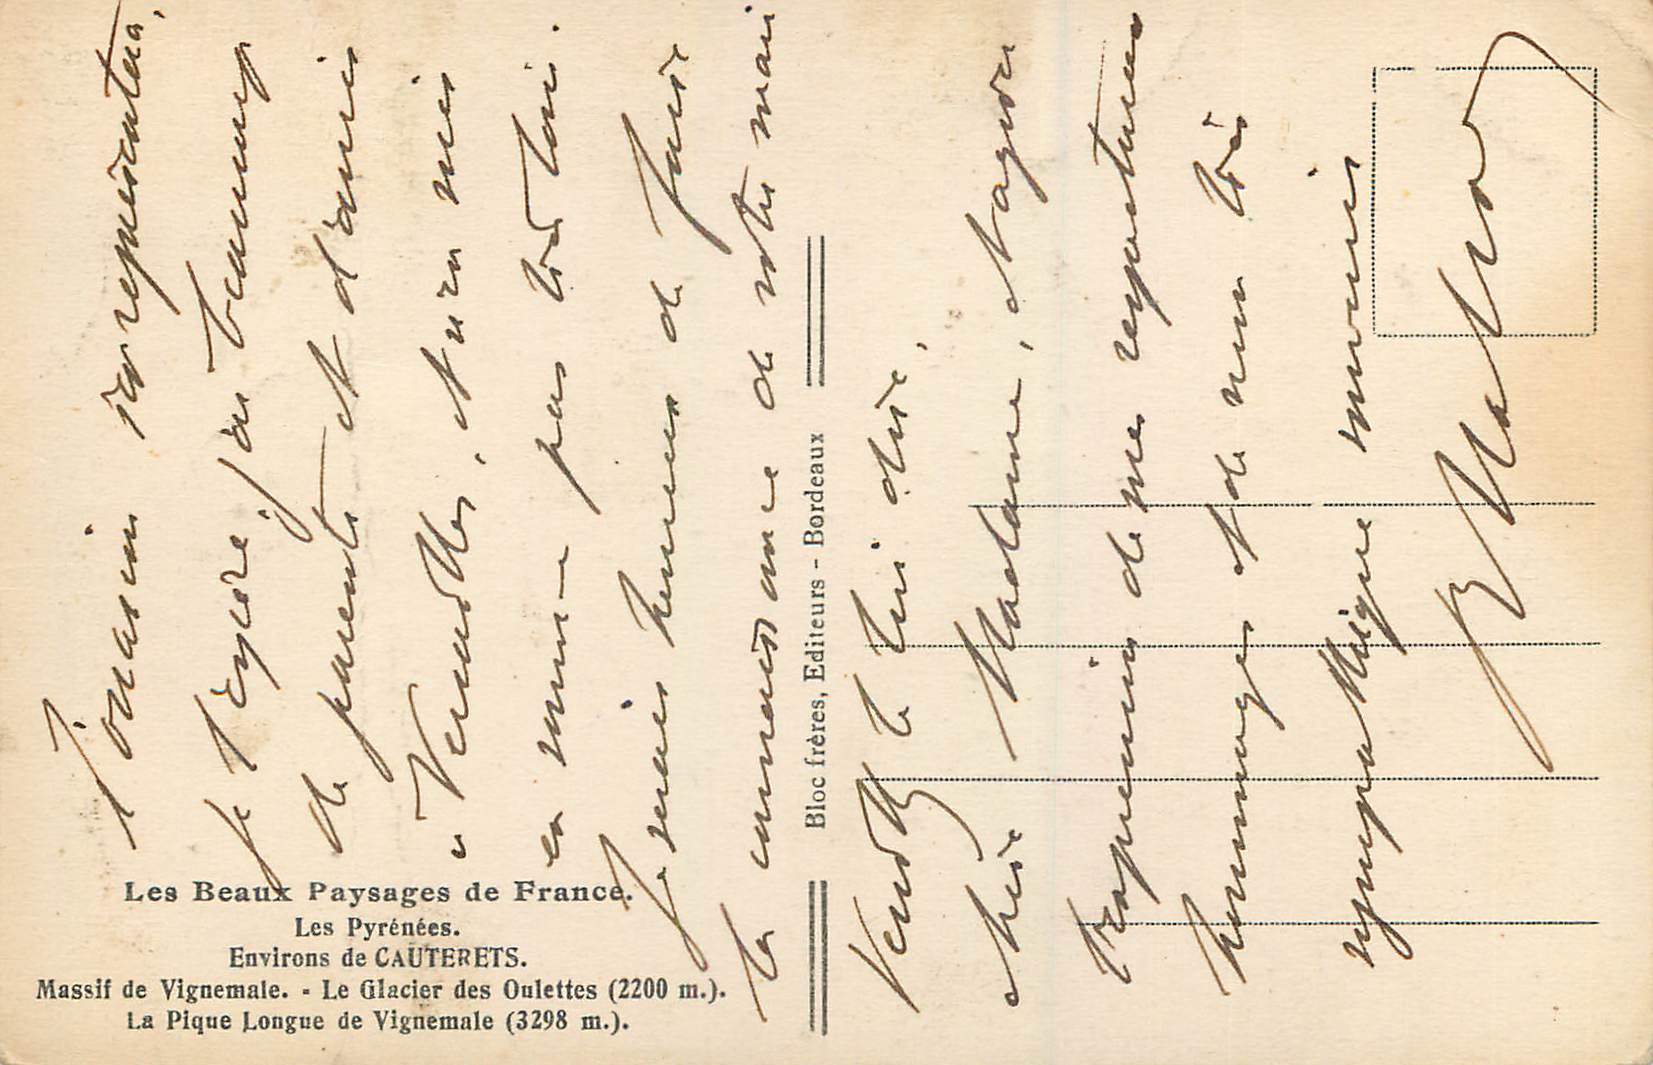 l'occasion se représentera,
Je l'espère, j'ai beaucoup
de parents et d'amis
à Versailles, et
en somme pas très loin.
Je serais heureux de faire
la connaissance de votre mari
Veuillez le lui dire,
chère Madame, et agréer
l'expression de mes respectueux
hommages et de mon très
sympathique souvenir
Les Beaux Paysages de France.
Les Pyrénées.
Environs de CAUTERETS.
Massif de Vignemale. - Le Glacier des Oulettes (2200 m.).
La Pique Longue de Vignemale (3298 m.).
Bloc frères, Editeurs - Bordeaux